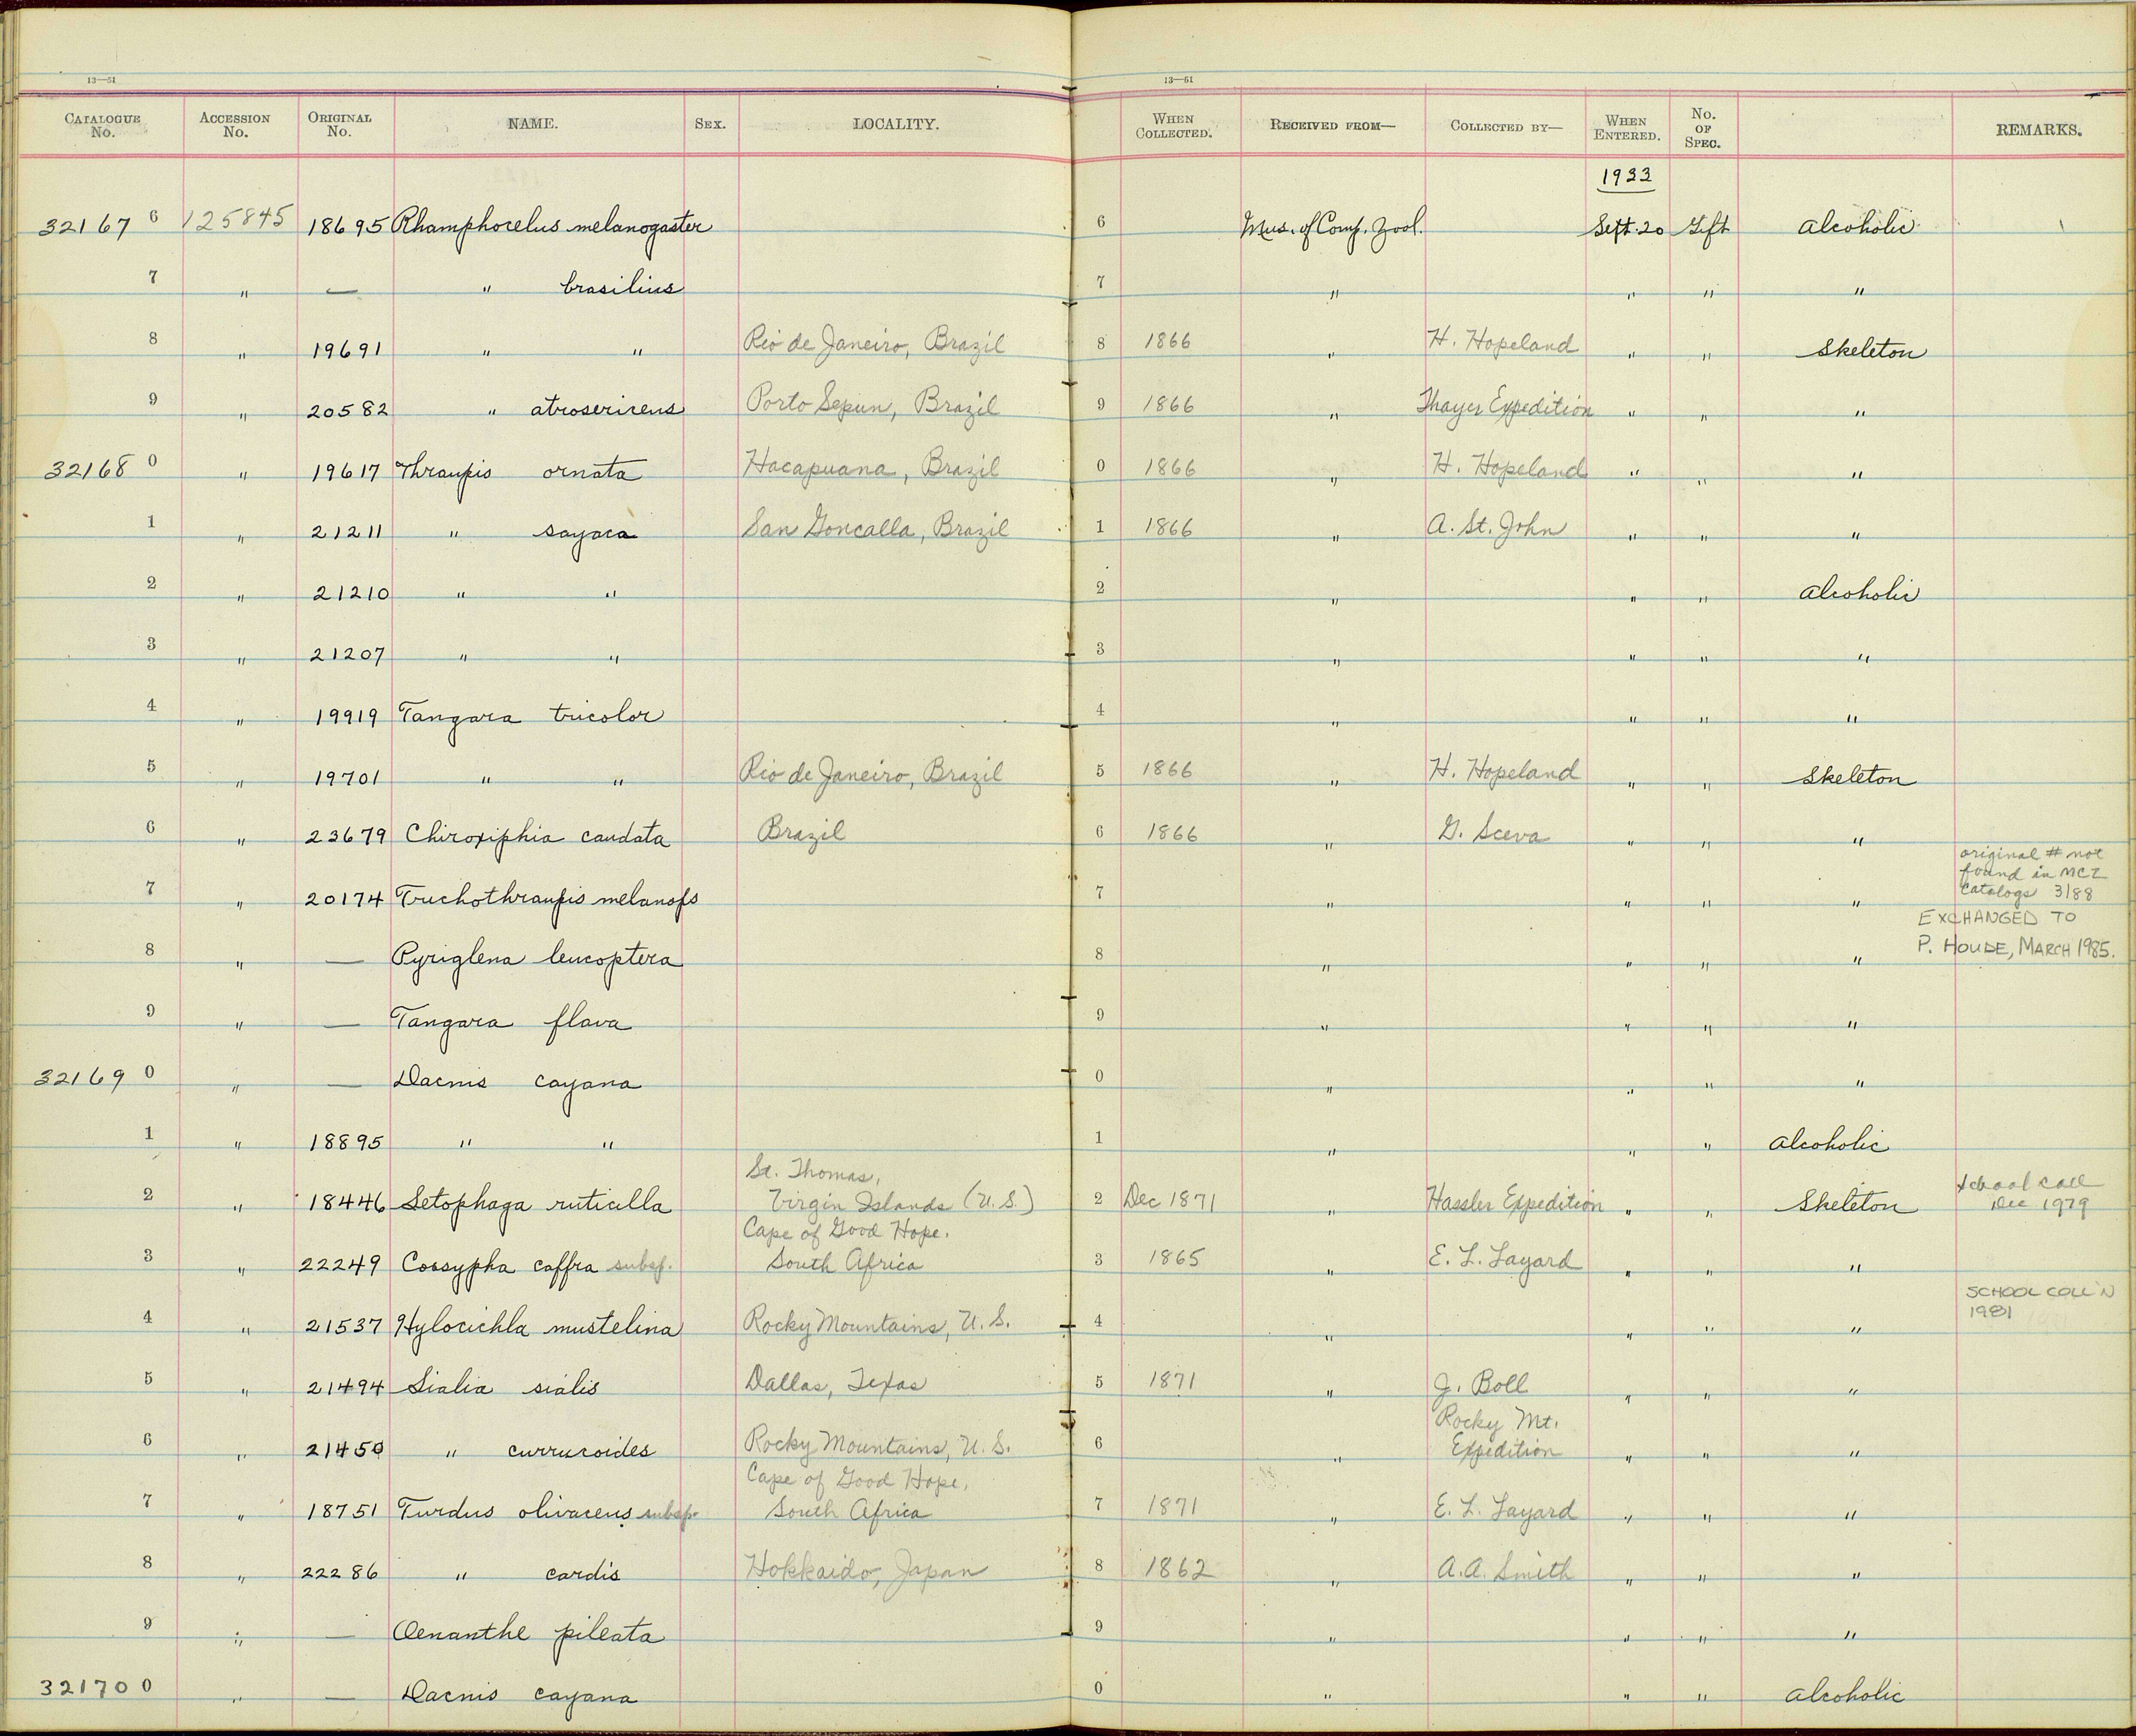 13—51 13—51
CATALOGUE No. ACCESSION No. ORIGINAL No. NAME. SEX. LOCALITY. WHEN COLLECTED. RECEIVED FROM— COLLECTED BY— WHEN ENTERED. No. OF SPEC. REMARKS.
1933
32167 6 125845 18695 Rhamphocelus melanogaster 6 Mus. of Comp. Zool. Sept. 20 Gift Alcoholic
7 " — " brasilius 7 " " " "
8 " 19691 " " Rio de Janeiro, Brazil 8 1866 " H. Hopeland " " Skeleton
9 " 20582 " atrosericeus Porto Sepun, Brazil 9 1866 " Thayer Expedition " " "
32168 0 " 19617 Thraupis ornata Hacapuana, Brazil 0 1866 " H. Hopeland " " "
1 " 21211 " sayaca San Goncalla, Brazil 1 1866 " A. St. John " " "
2 " 21210 " " 2 " " " Alcoholic
3 " 21207 " " 3 " " " "
4 " 19919 Tangara tricolor 4 " " " "
5 " 19701 " " Rio de Janeiro, Brazil 5 1866 " H. Hopeland " " Skeleton
6 " 23679 Chiroxiphia caudata Brazil 6 1866 " G. Sceva " " "
original # not
found in MCZ
catalogs 3/88
7 " 20174 Trichothraupis melanops 7 " " " "
EXCHANGED TO
P. HOUDE, MARCH 1985.
8 " — Pyriglena leucoptera 8 " " " "
9 " — Tangara flava 9 " " " "
32169 0 " — Dacnis cayana 0 " " " "
1 " 18895 " " 1 " " " Alcoholic
St. Thomas,
2 " 18446 Setophaga ruticilla Virgin Islands (U.S.) 2 Dec 1871 " Hassler Expedition " " Skeleton
School coll
Dec 1979
Cape of Good Hope.
3 " 22249 Cossypha caffra subsp. South Africa 3 1865 " E. L. Layard " " "
SCHOOL COLL'N
1981
4 " 21537 Hylocichla mustelina Rocky Mountains, U.S. 4 " " " "
5 " 21494 Sialia sialis Dallas, Texas 5 1871 " J. Boll " " "
Rocky Mt.
6 " 21450 " currucoides Rocky Mountains, U.S. 6 " Expedition " " "
Cape of Good Hope,
7 " 18751 Turdus olivaceus subsp. South Africa 7 1871 " E. L. Layard " " "
8 " 22286 " cardis Hokkaido, Japan 8 1862 " A.A. Smith " " "
9 " — Oenanthe pileata 9 " " " "
32170 0 " — Dacnis cayana 0 " " " Alcoholic